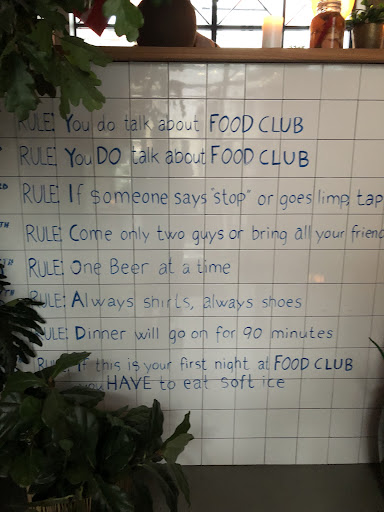 RULE: You do talk about FOOD CLUB
RULE: You DO talk about FOOD CLUB
RULE: If someone says "stop" or goes limp, tap
TH RULE: Come only two guys or bring all your friend
RULE: One Beer at a time
RULE: Always shirts, always shoes
RULE: Dinner will go on for 90 minutes
RULE: If this is your first night at FOOD CLUB
you HAVE to eat soft ice